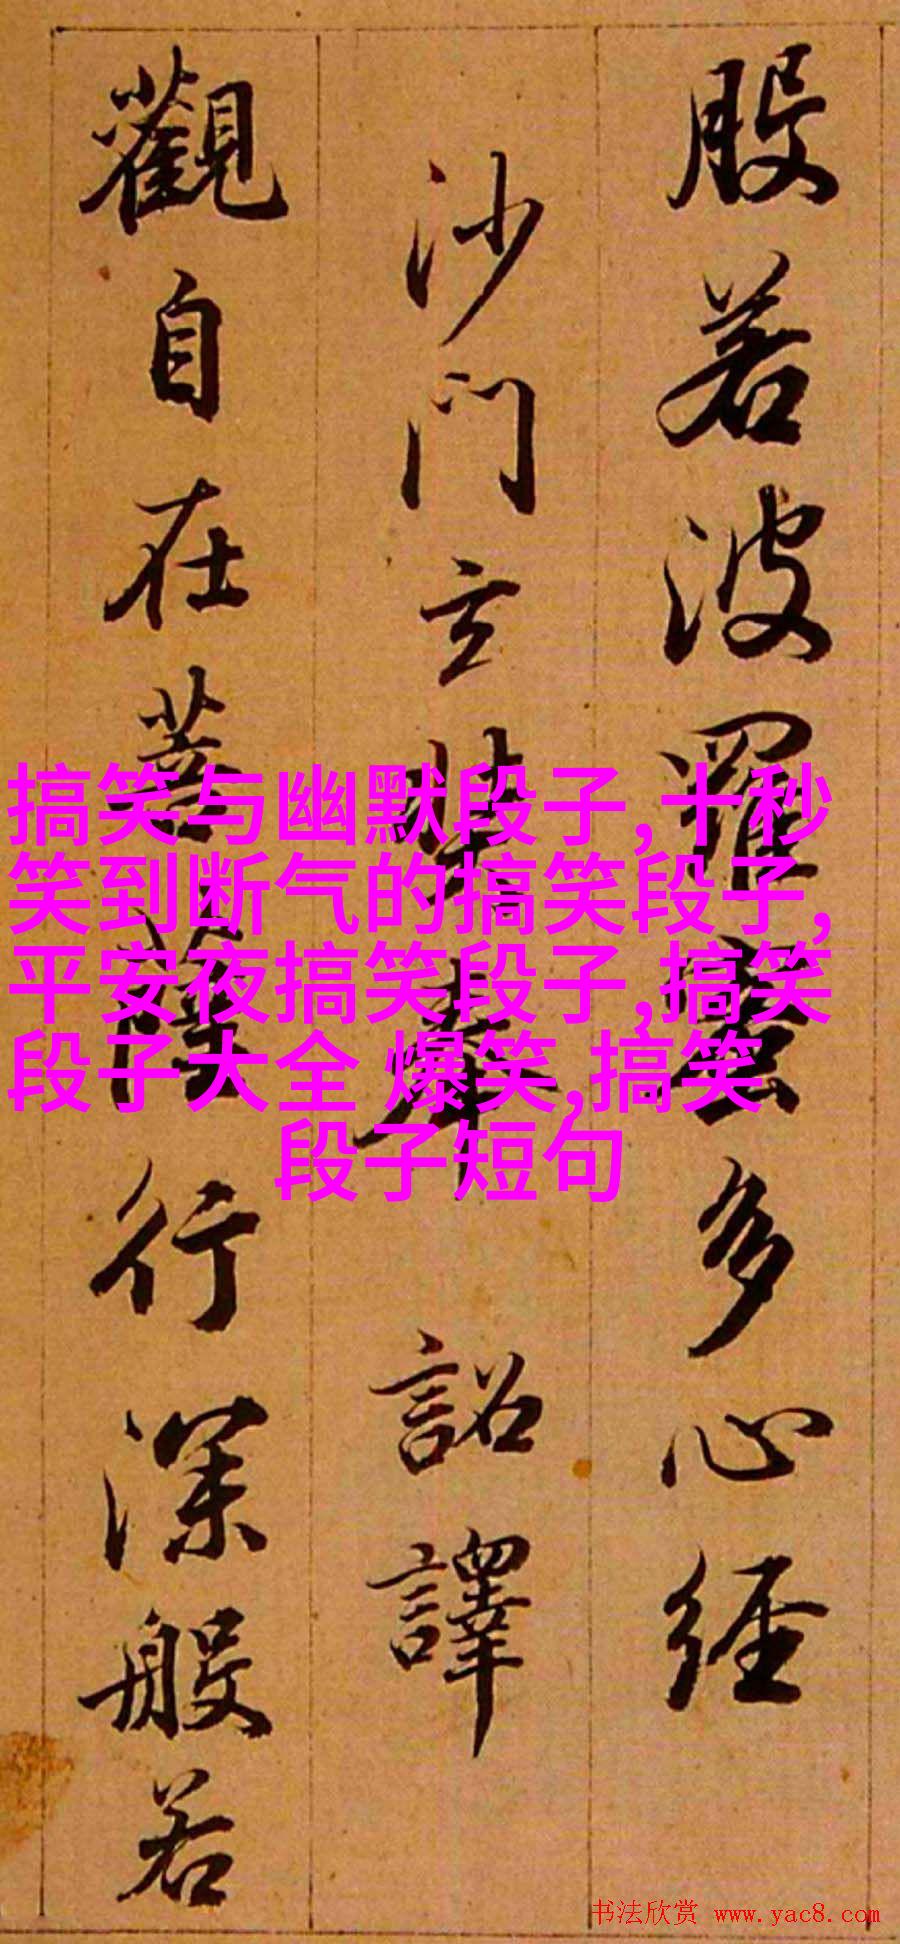 般若波羅蜜多心経
沙門玄奘奉 詔譯
觀自在菩薩行深般若
搞笑与幽默段子,十秒
笑到断气的搞笑段子,
平安夜搞笑段子,搞笑
段子大全 爆笑,搞笑
段子短句
书法欣赏 www.yac8.com